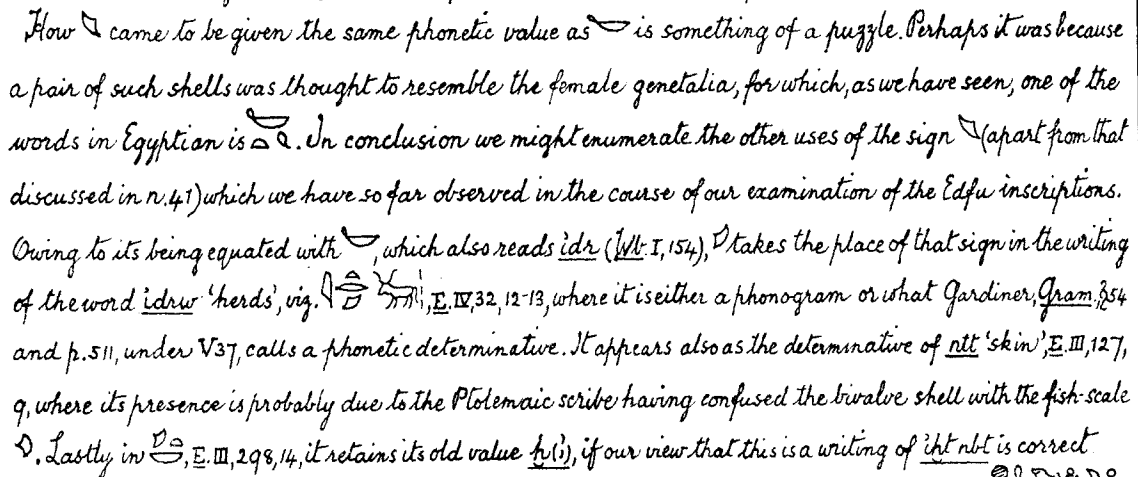 How came to be given the same phonetic value as is something of a puzzle. Perhaps it was because
a pair of such shells was thought to resemble the female genetalia, for which, as we have seen, one of the
words in Egyptian is . In conclusion we might enumerate the other uses of the sign (apart from that
discussed in n.41) which we have so far observed in the course of our examination of the Edfu inscriptions.
Owing to its being equated with , which also reads ỉdr (Wb. I, 154), takes the place of that sign in the writing
of the word ỉdrw 'herds', viz. , E. IV, 32, 12-13, where it is either a phonogram or what Gardiner, Gram. §54
and p. 511, under V37, calls a phonetic determinative. It appears also as the determinative of ntt 'skin', E. III, 127,
9, where its presence is probably due to the Ptolemaic scribe having confused the bivalve shell with the fish-scale
. Lastly in , E. III, 298, 14, it retains its old value ḫ(ỉ), if our view that this is a writing of ỉḫt nbt is correct